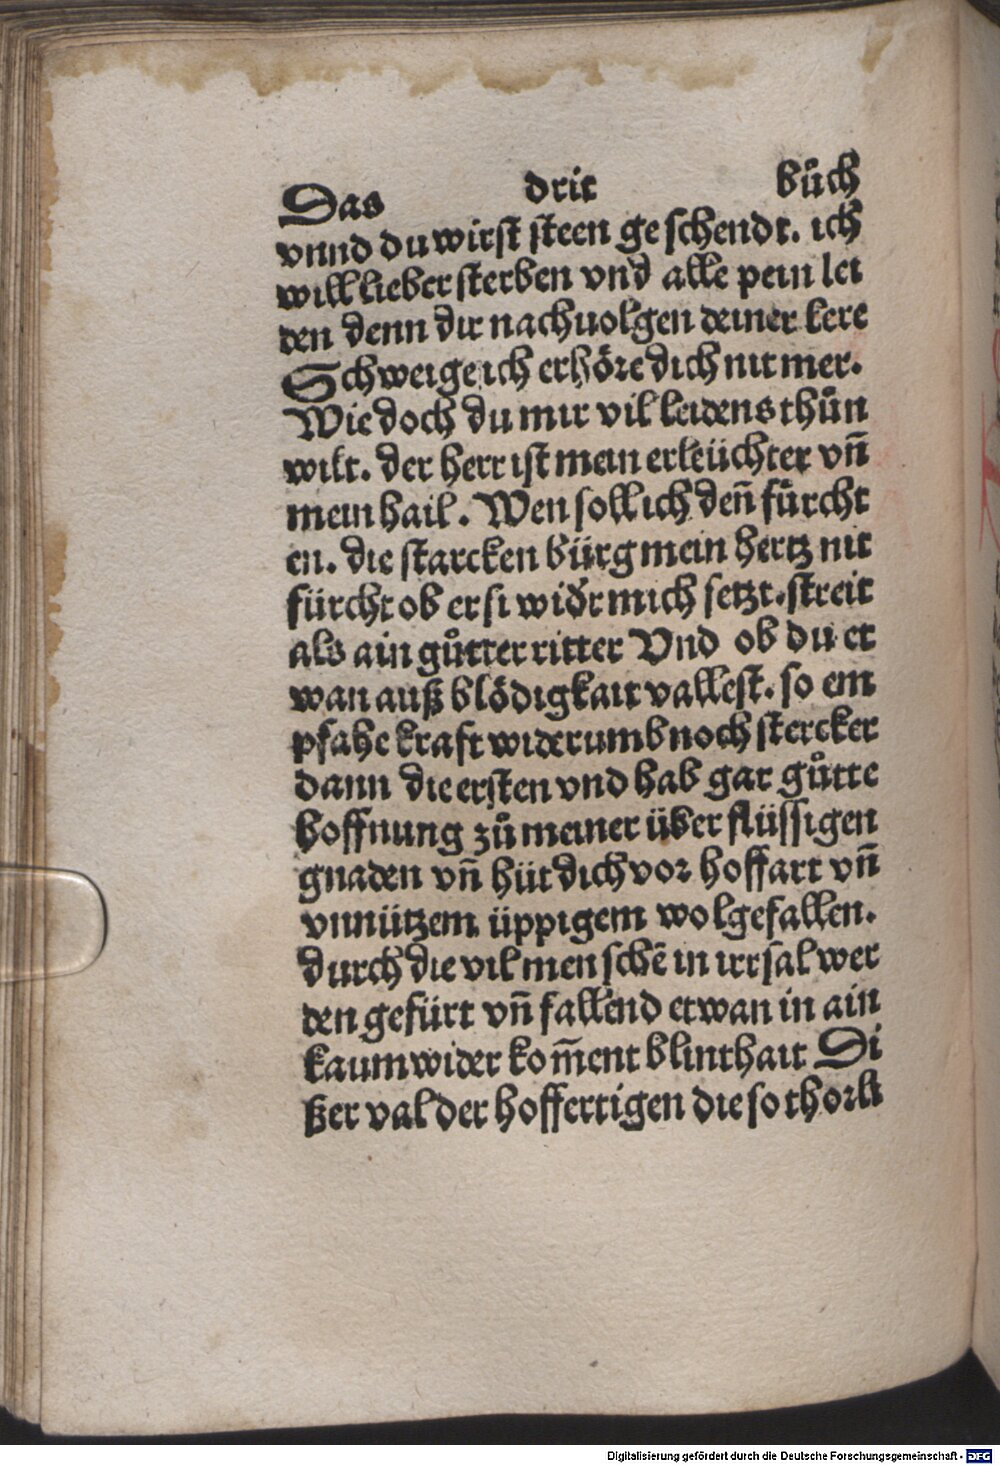 Das drit bůch
vnnd du wirst steen geschendt. ich
will lieber sterben vnd alle pein lei
den denn dir nachuolgen deiner lere
Schweige ich erhöre dich nit mer.
Wie doch du mir vil leidens thůn
wilt. der herr ist mein erleüchter vñ
mein hail. Wen soll ich deñ fürcht
en. die starcken bürg mein hertz nit
fürcht ob er si widr mich setzt. streit
als ain gůtter ritter Vnd ob du et
wan auß blödigkait vallest. so em
pfahe kraft widerumb noch stercker
dann die ersten vnd hab gar gůtte
hoffnung zů meiner über flüssigen
gnaden vñ hüt dich vor hoffart vñ
vnnützem üppigem wolgefallen.
durch die vil menschē in irrsal wer
den gefürt vñ fallend etwan in ain
kaum wider kom̄ent blinthait Di
ßer val der hoffertigen die so thorli
Digitalisierung gefördert durch die Deutsche Forschungsgemeinschaft - DFG